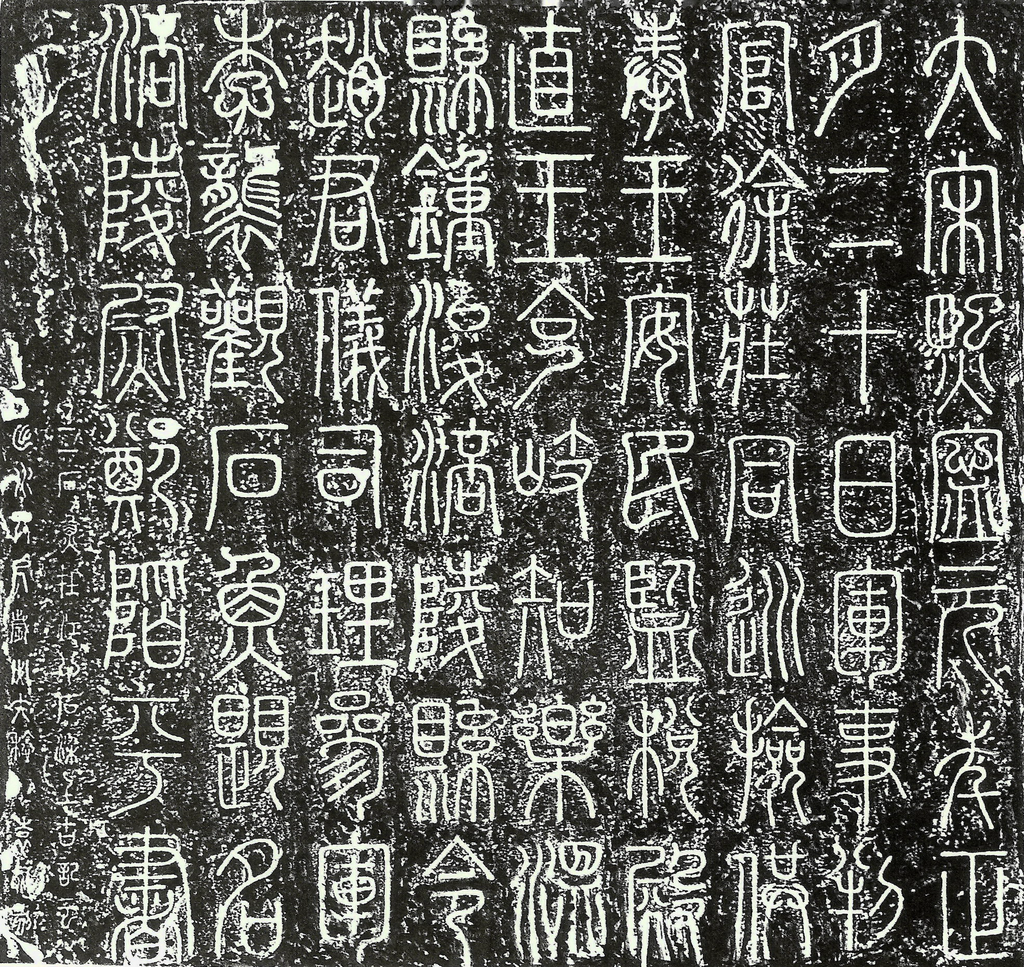 大宋熙寧元年正
月二十日軍事判
官徐莊同巡檢供
奉王安民監稅殿
直王令岐知樂溫
縣鍾浚涪陵縣令
趙君儀司理參軍
李襲觀石魚題名
涪陵尉鄭階平書